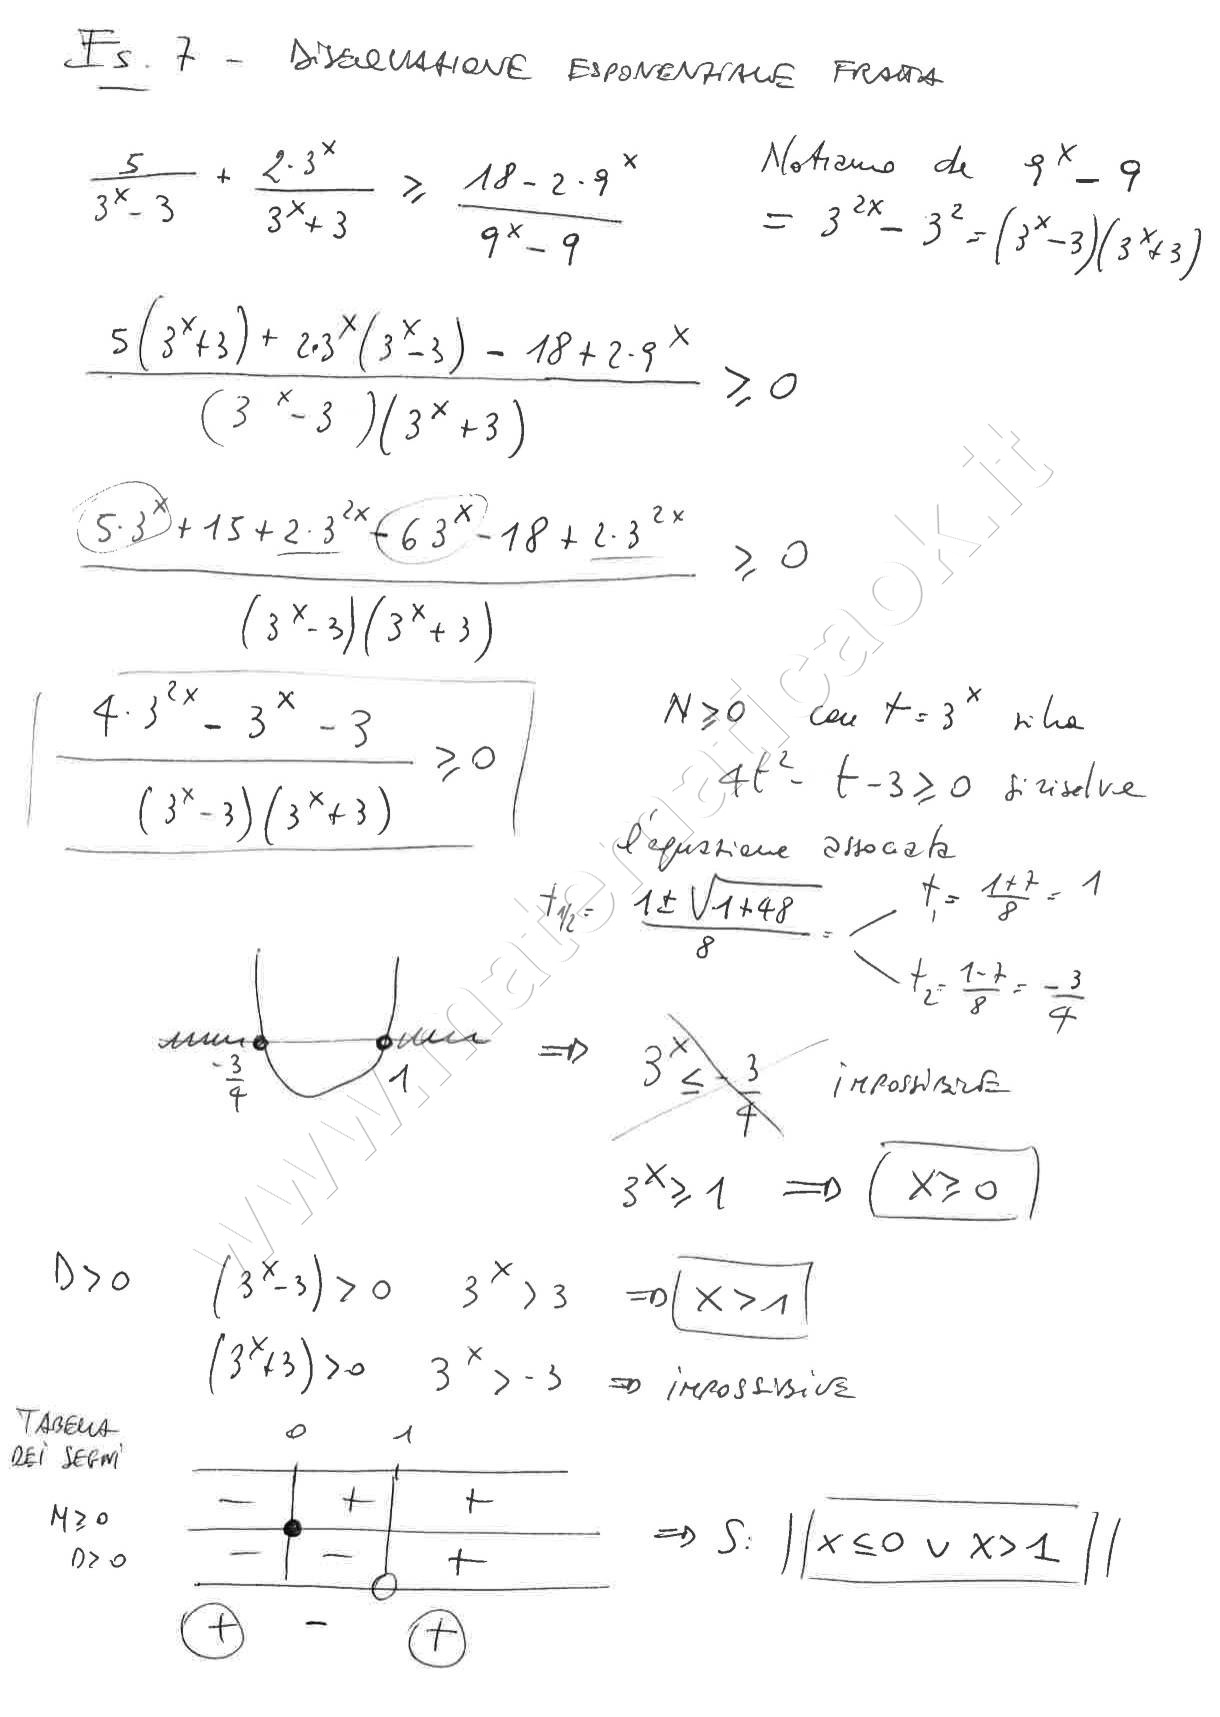 Es. 7 - DISEQUAZIONE ESPONENZIALE FRATTA
5/(3^x - 3) + 2·3^x/(3^x + 3) ≥ (18 - 2·9^x)/(9^x - 9)
Notiamo che 9^x - 9
= 3^{2x} - 3^2 = (3^x - 3)(3^x + 3)
(5(3^x + 3) + 2·3^x(3^x - 3) - 18 + 2·9^x)/((3^x - 3)(3^x + 3)) ≥ 0
(5·3^x + 15 + 2·3^{2x} - 6 3^x - 18 + 2·3^{2x})/((3^x - 3)(3^x + 3)) ≥ 0
(4·3^{2x} - 3^x - 3)/((3^x - 3)(3^x + 3)) ≥ 0
N ≥ 0 con t = 3^x si ha
4t^2 - t - 3 ≥ 0 si risolve
l'equazione associata
t_{1/2} = (1 ± √(1 + 48))/8 =
t_1 = (1+7)/8 = 1
t_2 = (1-7)/8 = -3/4
-3/4 1
⇒ 3^x ≤ -3/4 IMPOSSIBILE
3^x ≥ 1 ⇒ x ≥ 0
D > 0 (3^x - 3) > 0 3^x > 3 ⇒ x > 1
(3^x + 3) > 0 3^x > -3 ⇒ IMPOSSIBILE
TABELLA
DEI SEGNI
0 1
N ≥ 0 - + +
D > 0 - - +
+ - +
⇒ S: || x ≤ 0 ∨ x > 1 ||
www.matematicaok.it